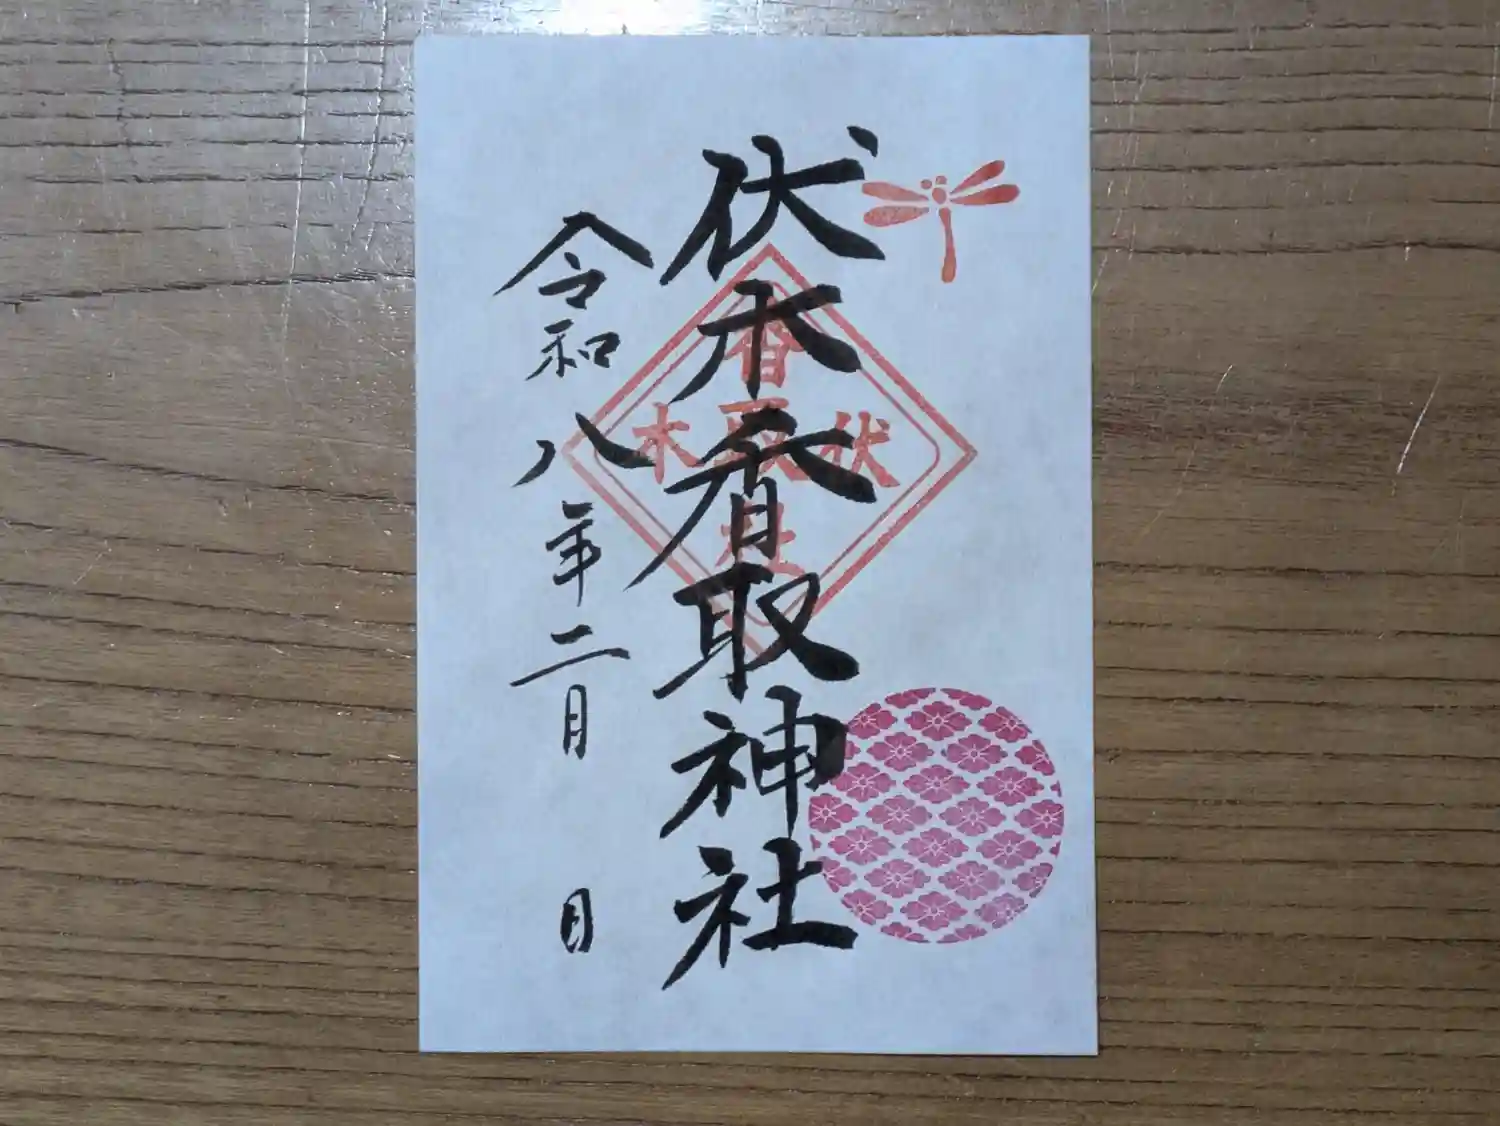 伏木香取神社
令和八年二月 日
香取
伏木
社